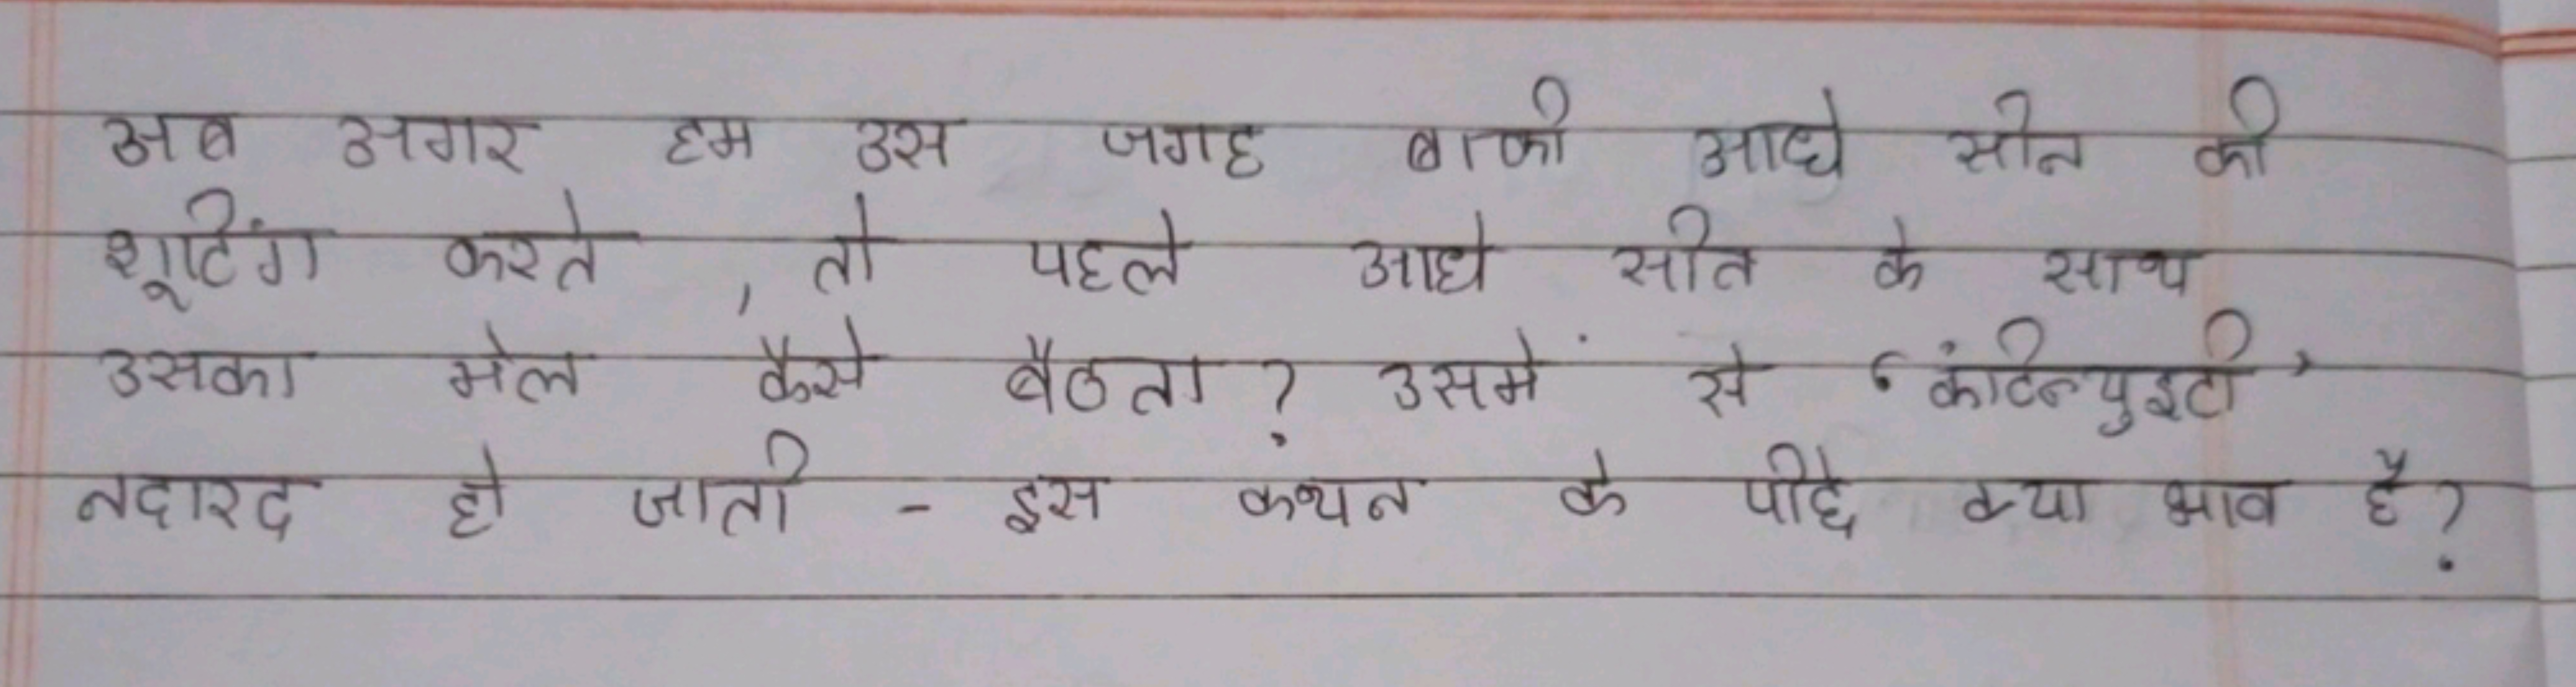 अब अगर हम उस जगह बाकी आधे सीन की
शूटिंग करते , तो पहले आधे सीन के साथ
उसका मेल कैसे बैठता ? उसमें से 'कंटिन्युइटी'
नदारद हो जाती - इस कथन के पीछे क्या भाव है ?